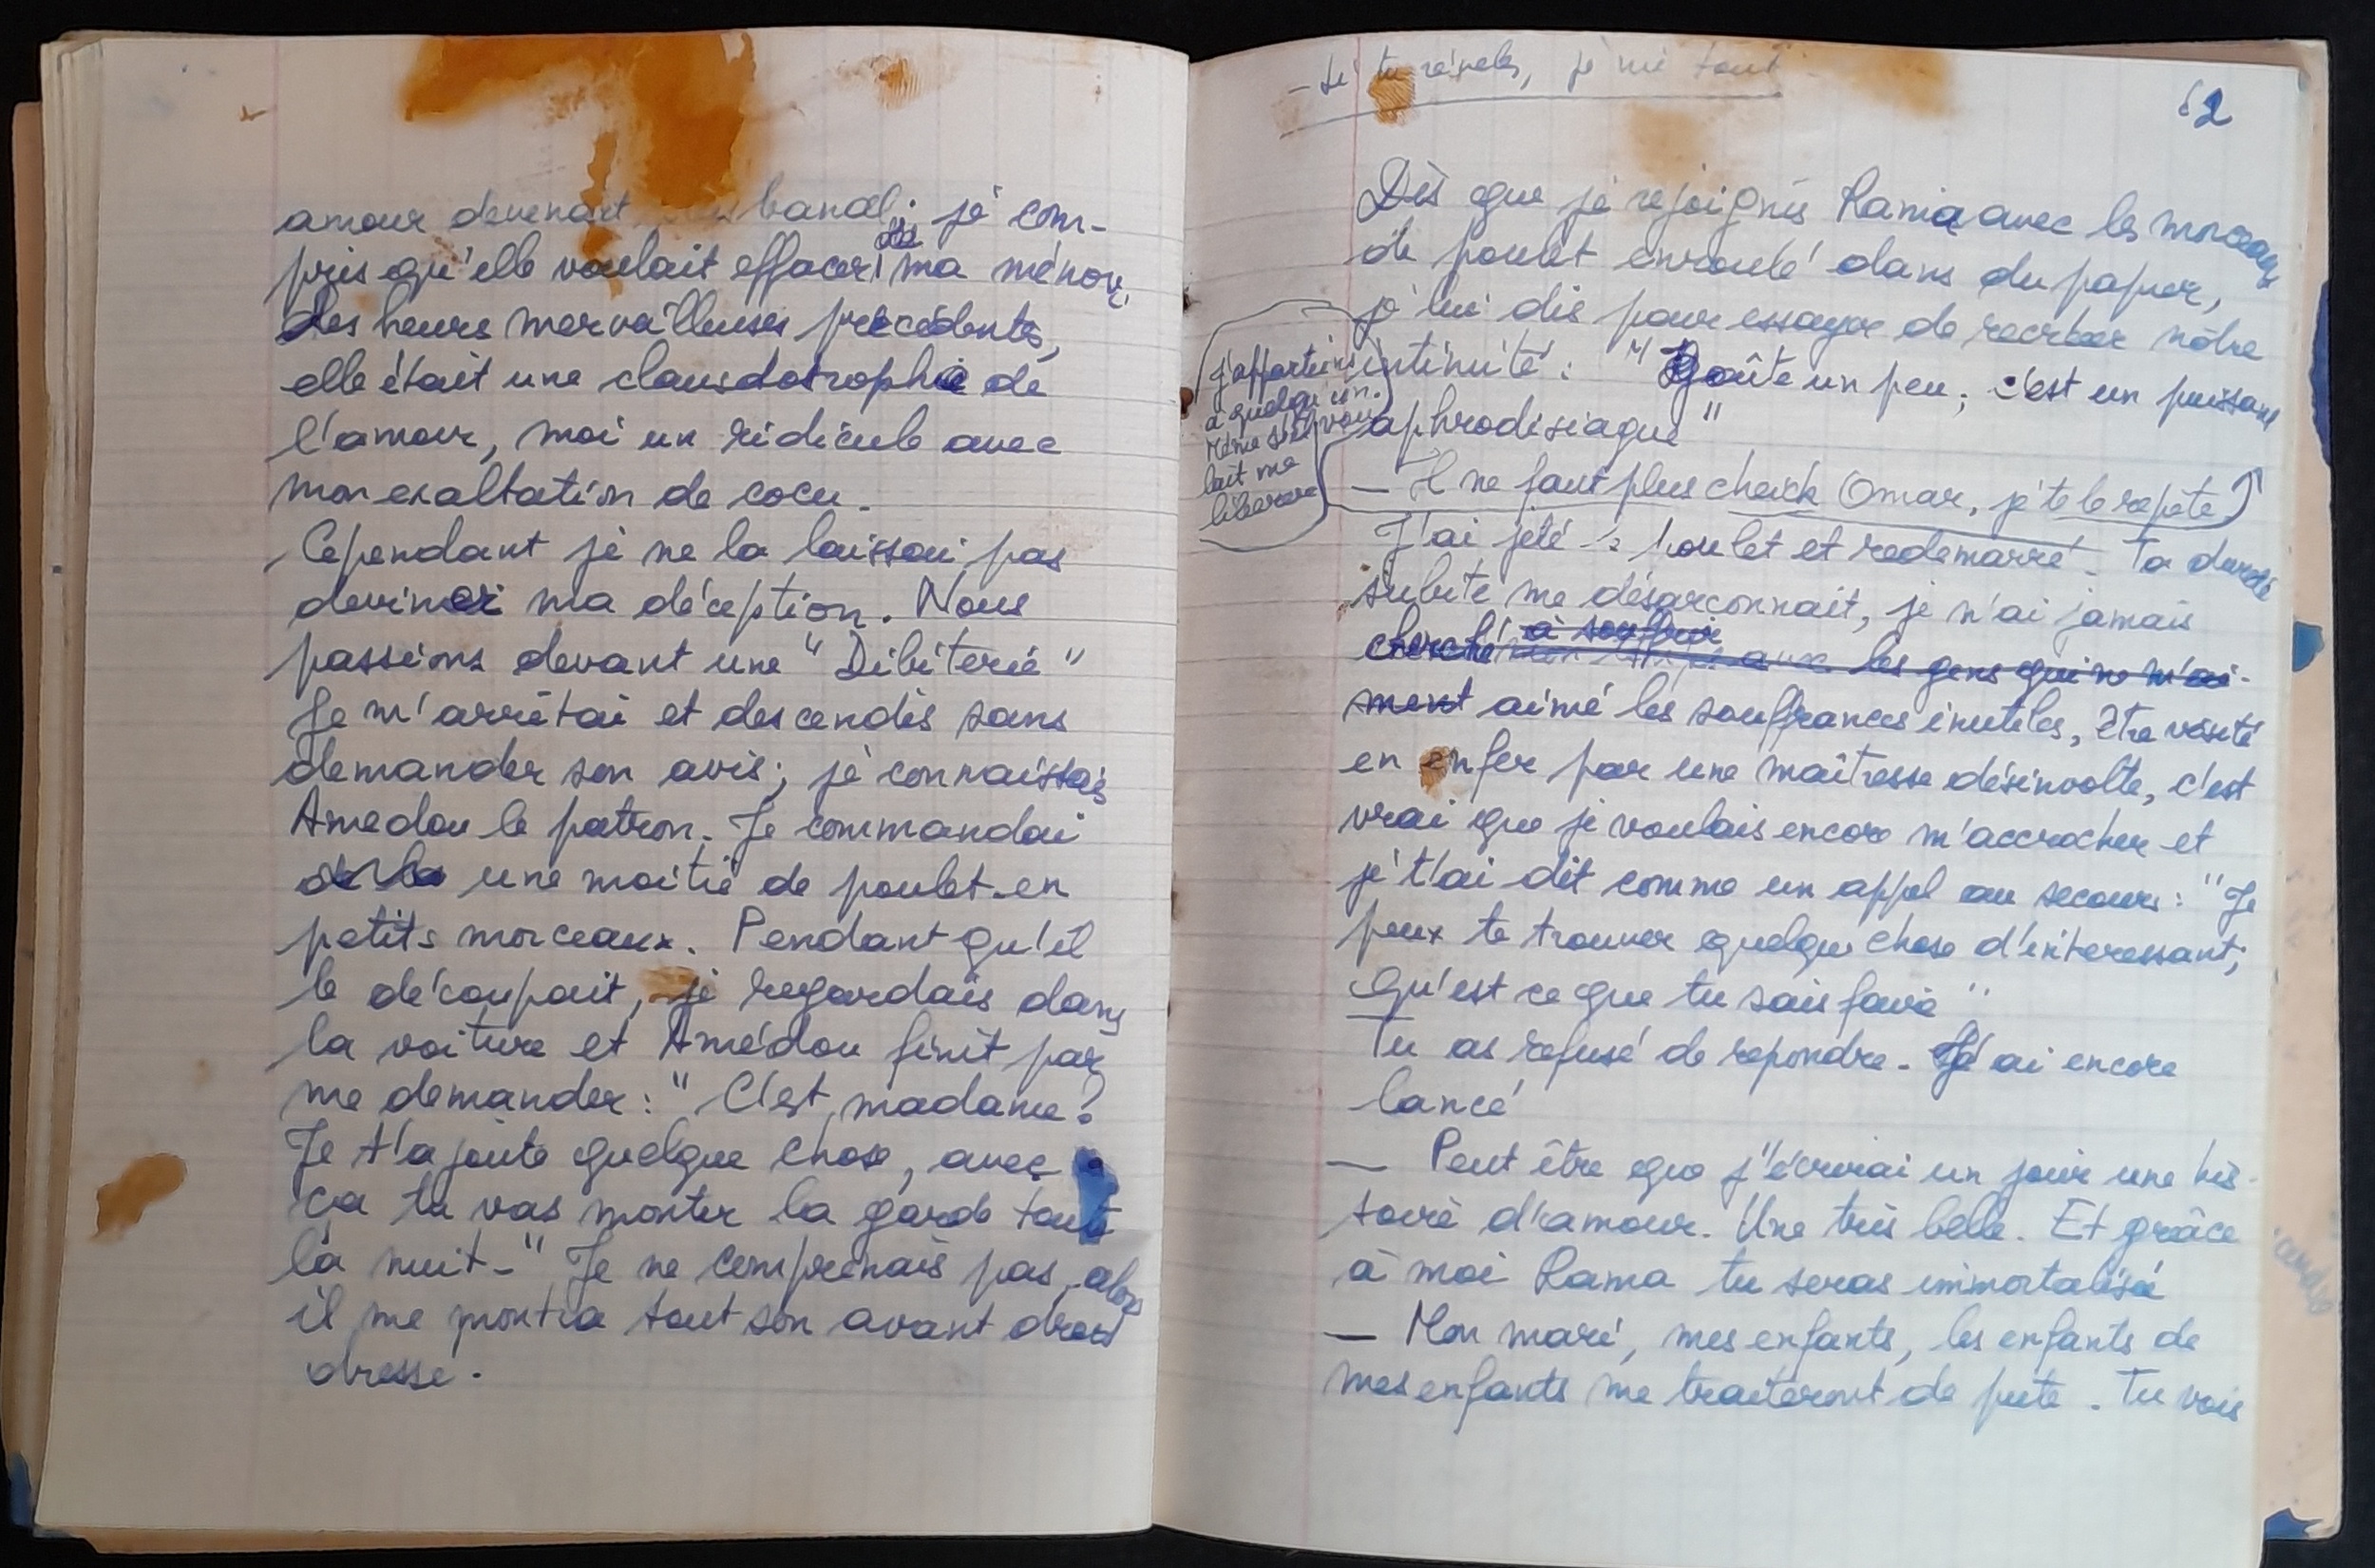 amour devenait banal; je com-
pris qu'elle voulait effacer de ma mémoi
des heures merveilleuses précédents,
elle était une claustrophie de
l'amour, moi un ridicule avec
mon exaltation de cocu.
Cependant je ne la laissai pas
deviner ma déception. Nous
passions devant une "Dibiterie"
Je m'arrêtai et descendis sans
demander son avis; je connaissais
Amedou le patron. Je commandai
une moitié de poulet en
petits morceaux. Pendant qu'il
le découpait, je regardais dans
la voiture et Amédou finit par
me demander: "C'est madame?
Je t'ajoute quelque chose, avec
ça tu vas monter la garde toute
la nuit-" Je ne comprenais pas, alors
il me montra tout son avant bras
dressé.
- Si tu révèles, je nie tout
62
Dès que je rejoignis Rama avec les morceaux
de poulet enroulé dans du papier,
je lui dis pour essayer de recréer nôtre
intimité: "Goûte un peu; c'est un puissant
aphrodisiaque"
j'appartiens
à quelqu'un.
Même s'il vou
lait me
liberer
- Il ne faut plus cheick Omar, je te le repète
J'ai jeté le poulet et redemarré. Ta dureté
subite me désarçonnait, je n'ai jamais
cherché à souffrir les gens qui ne m'ai-
ment aimé les souffrances inutiles, être visité
en enfer par une maîtresse désinvolte, c'est
vrai que je voulais encore m'accrocher et
je t'ai dit comme un appel au secours: "Je
peux te trouver quelque chose d'interessant,
Qu'est ce que tu sais faire"
Tu as refusé de repondre. J'ai encore
lancé
— Peut être que j'écrirai un jour une his-
toire d'amour. Une très belle. Et grâce
à moi Rama tu seras immortalisée
— Mon mari, mes enfants, les enfants de
mes enfants me traiteront de pute. Tu vois